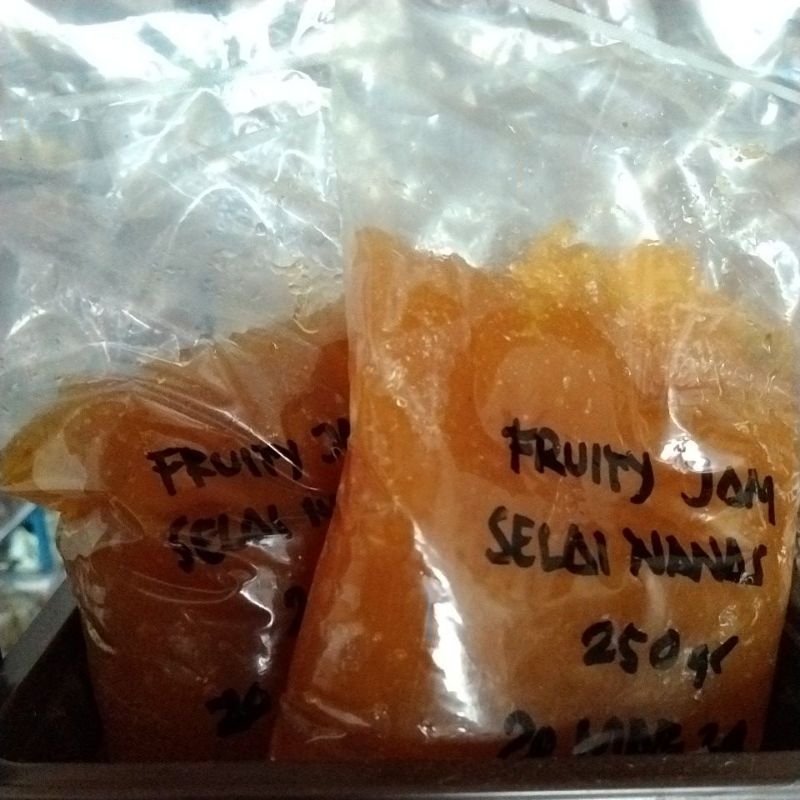 FRUITY
SELAI
20
FRUITY JAM
SELAI NANAS
250 gr
20 MAR